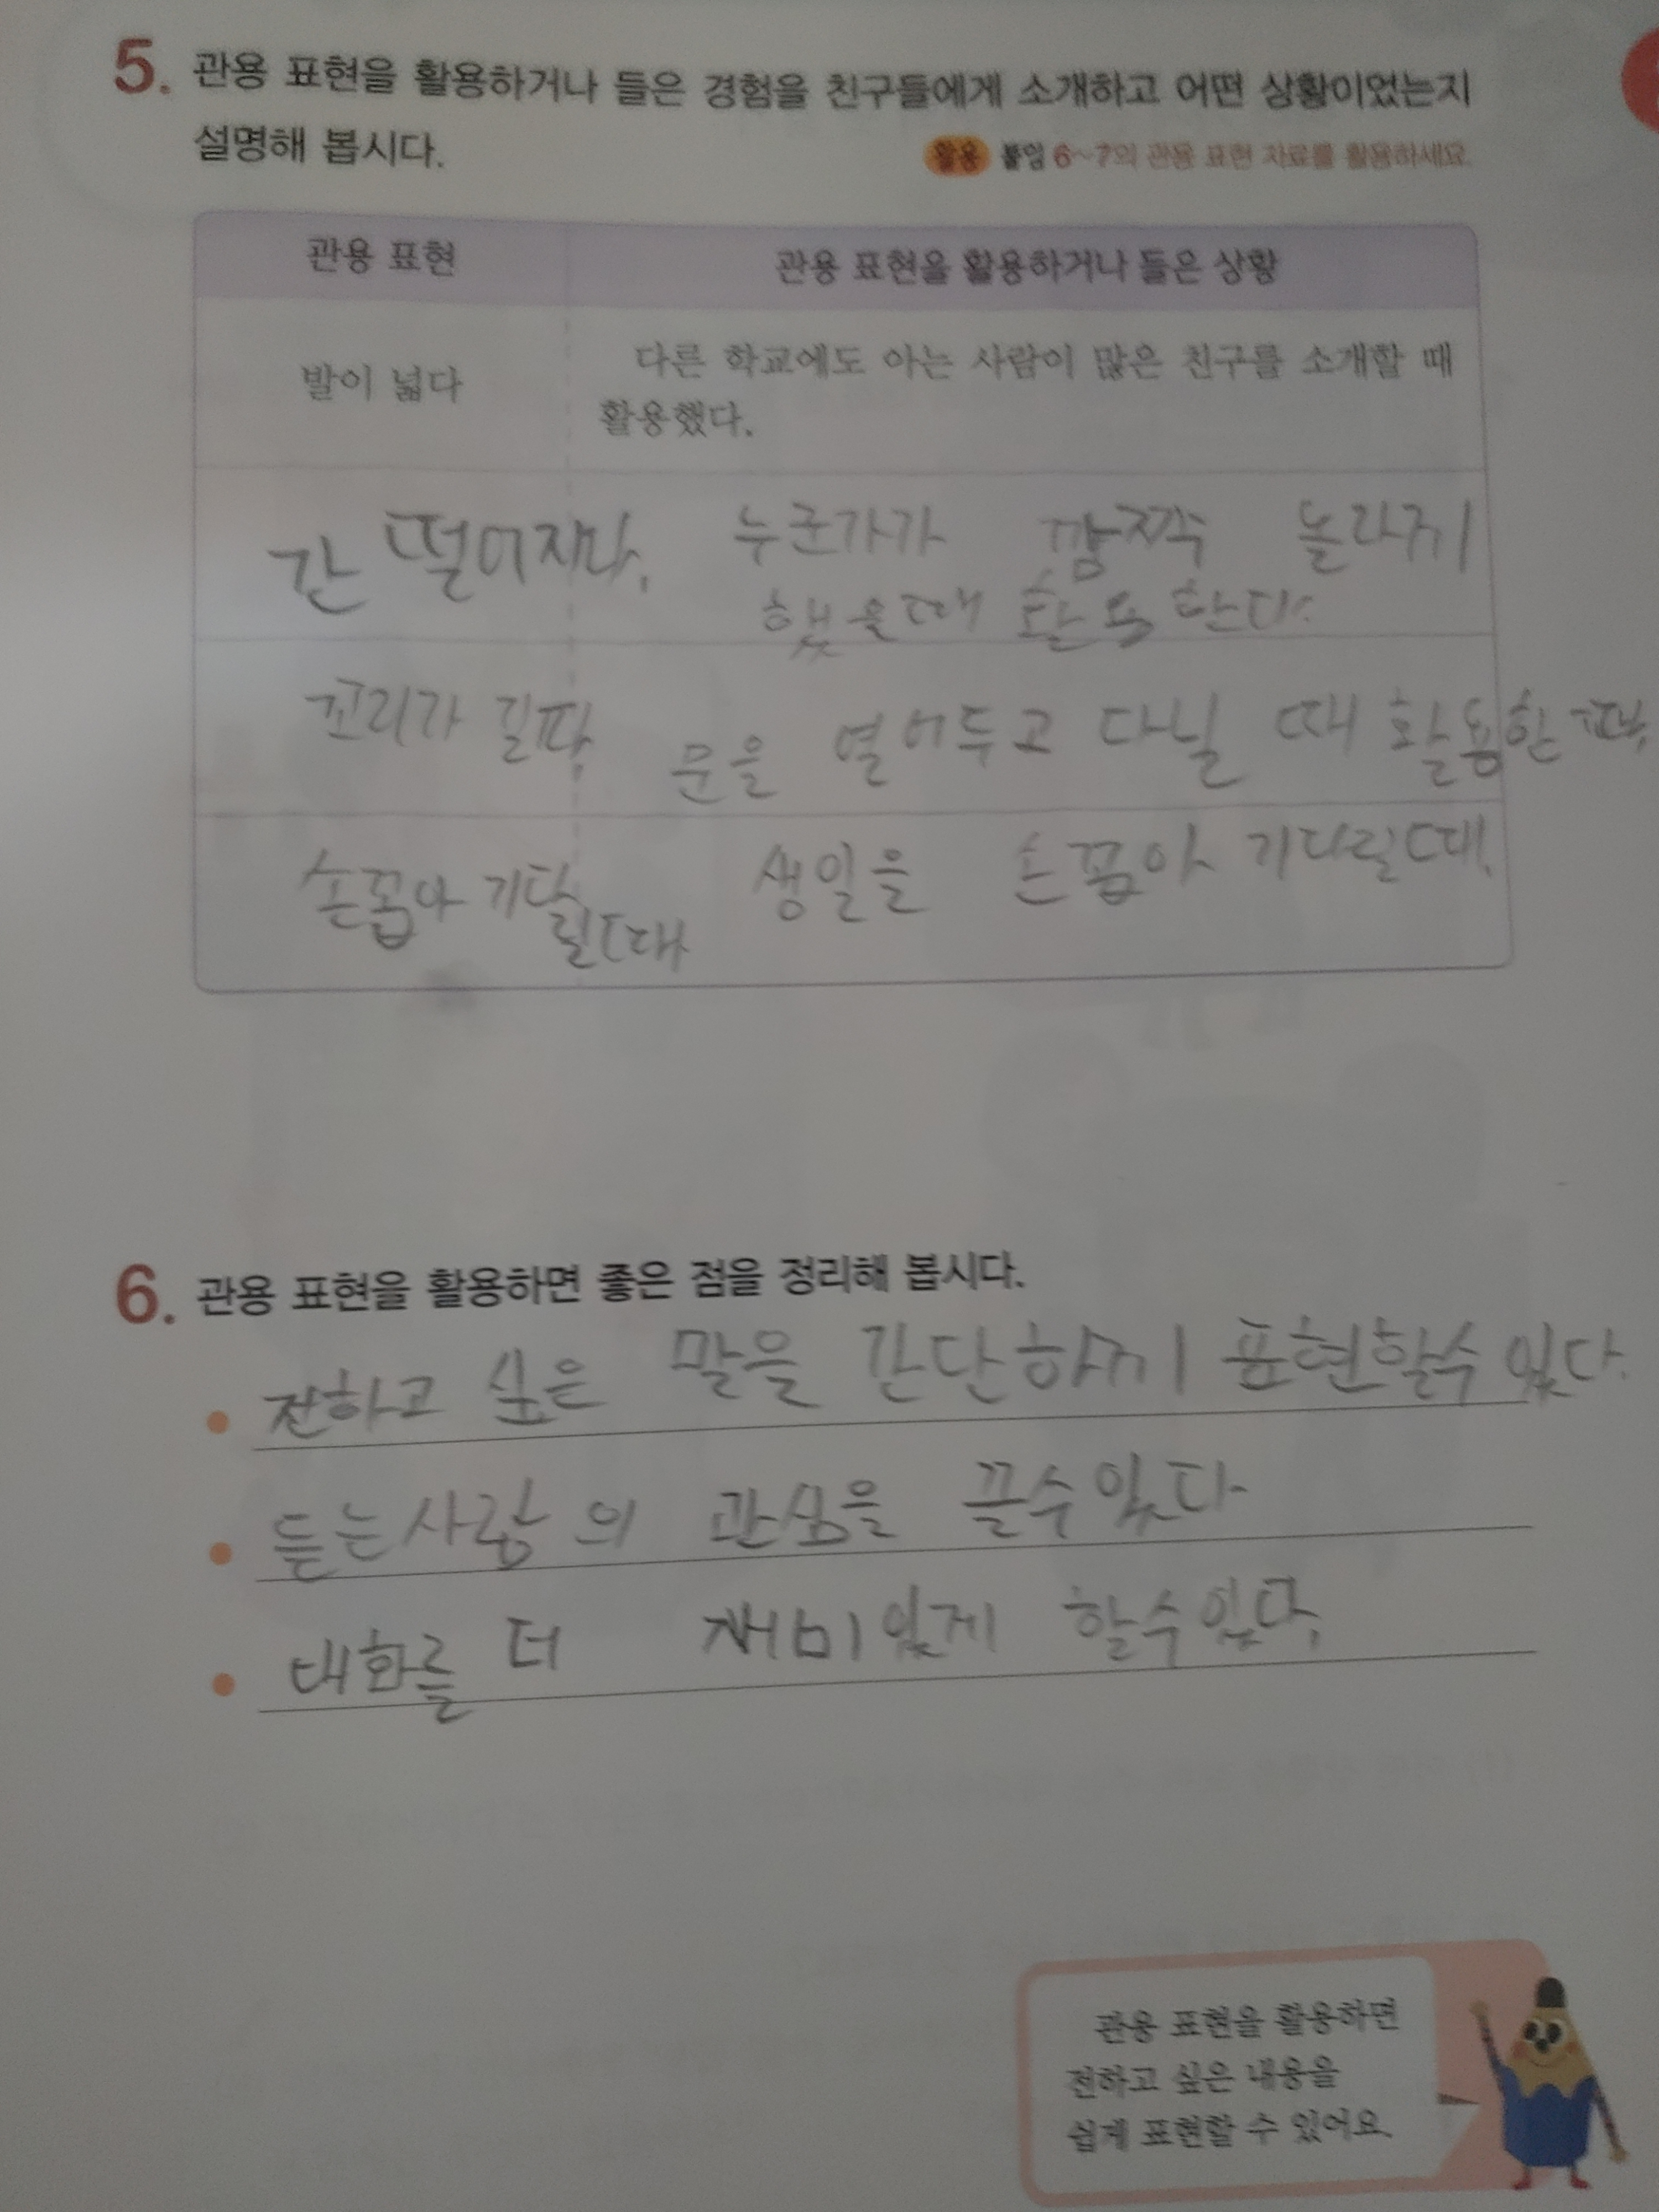 5. 관용 표현을 활용하거나 들은 경험을 친구들에게 소개하고 어떤 상황이었는지
설명해 봅시다.
활용 붙임 6~7의 관용 표현 자료를 활용하세요.
관용 표현
관용 표현을 활용하거나 들은 상황
발이 넓다
다른 학교에도 아는 사람이 많은 친구를 소개할 때
활용했다.
간 떨어지다.
누군가가 깜짝 놀라게
했을때 활용한다.
꼬리가 길다.
문을 열어두고 다닐 때 활용한다.
손꼽아 기다
릴때
생일을 손꼽아 기다릴때.
6. 관용 표현을 활용하면 좋은 점을 정리해 봅시다.
• 전하고 싶은 말을 간단하게 표현할수 있다.
• 듣는사람의 관심을 끌수있다
• 대화를 더 재미있게 할수있다.
관용 표현을 활용하면
전하고 싶은 내용을
쉽게 표현할 수 있어요.